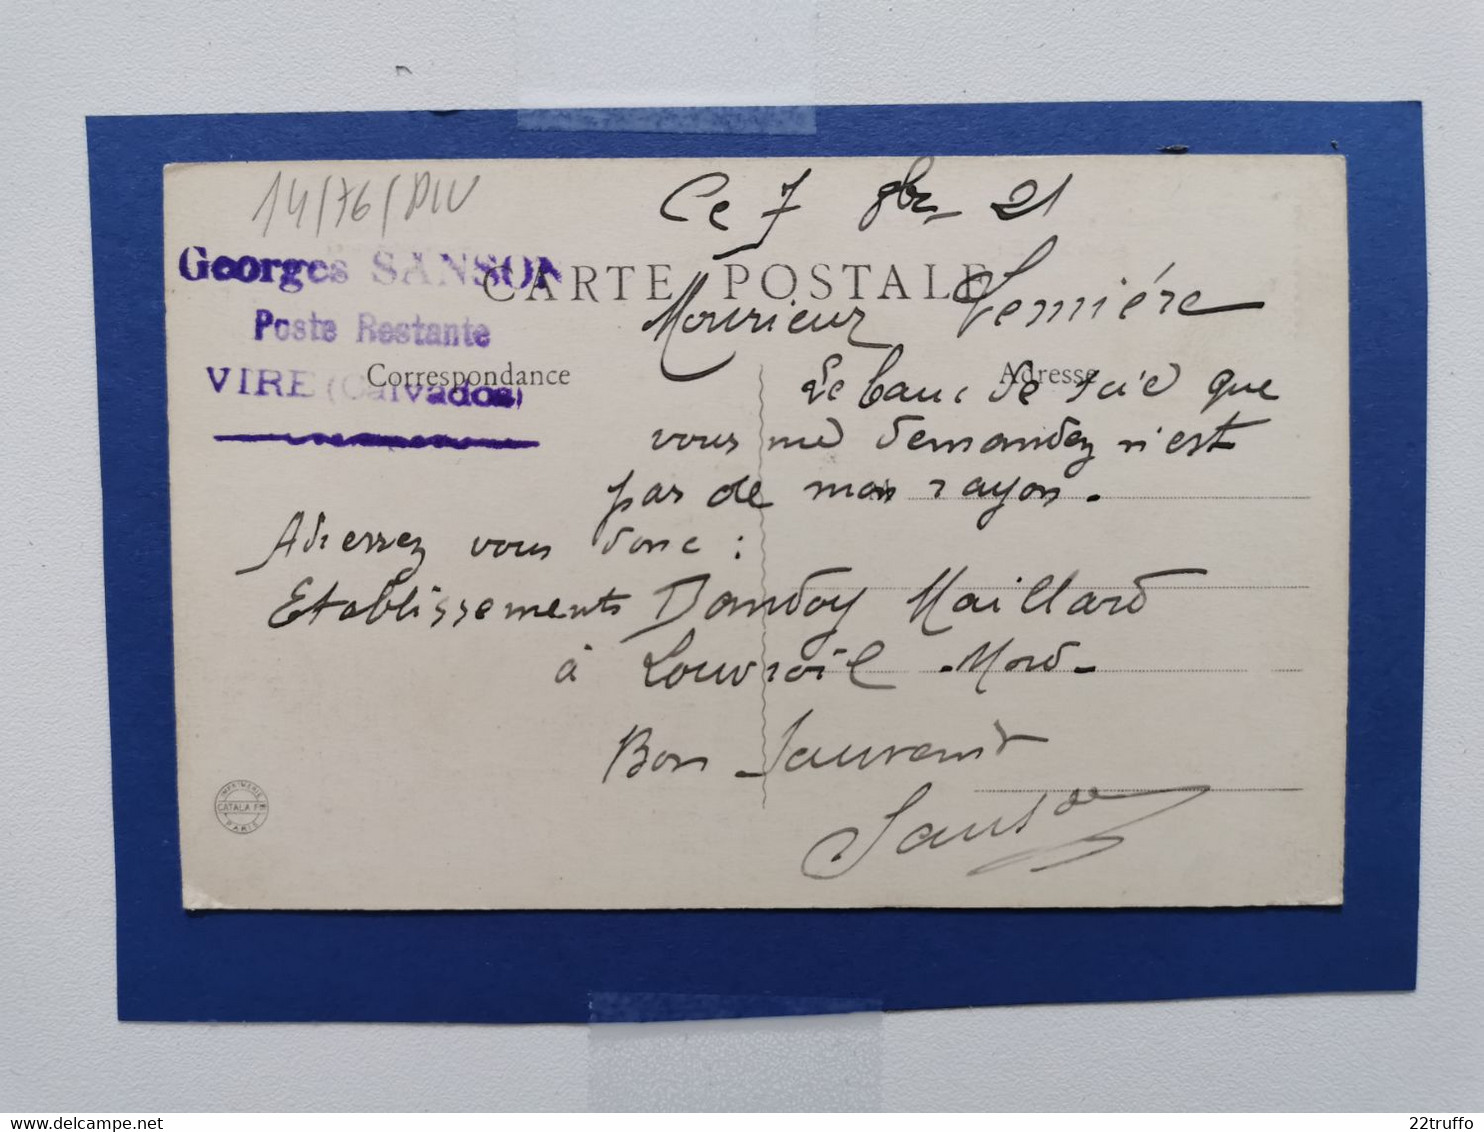 14/76/DIV
Georges SANSON
Poste Restante
VIRE (Calvados)
CARTE POSTALE
Correspondance
Adresse
Ce 7 8bre 21
Monsieur
Le banc de scie que
vous me demandez n'est
pas de mon rayon.
Adressez vous donc :
Etablissements Dandoy Maillard
à Louvroil - Nord -
Bon Souvenir
IMPRIMERIE
CATALA FRES
PARIS
22truffo
delcampe.net